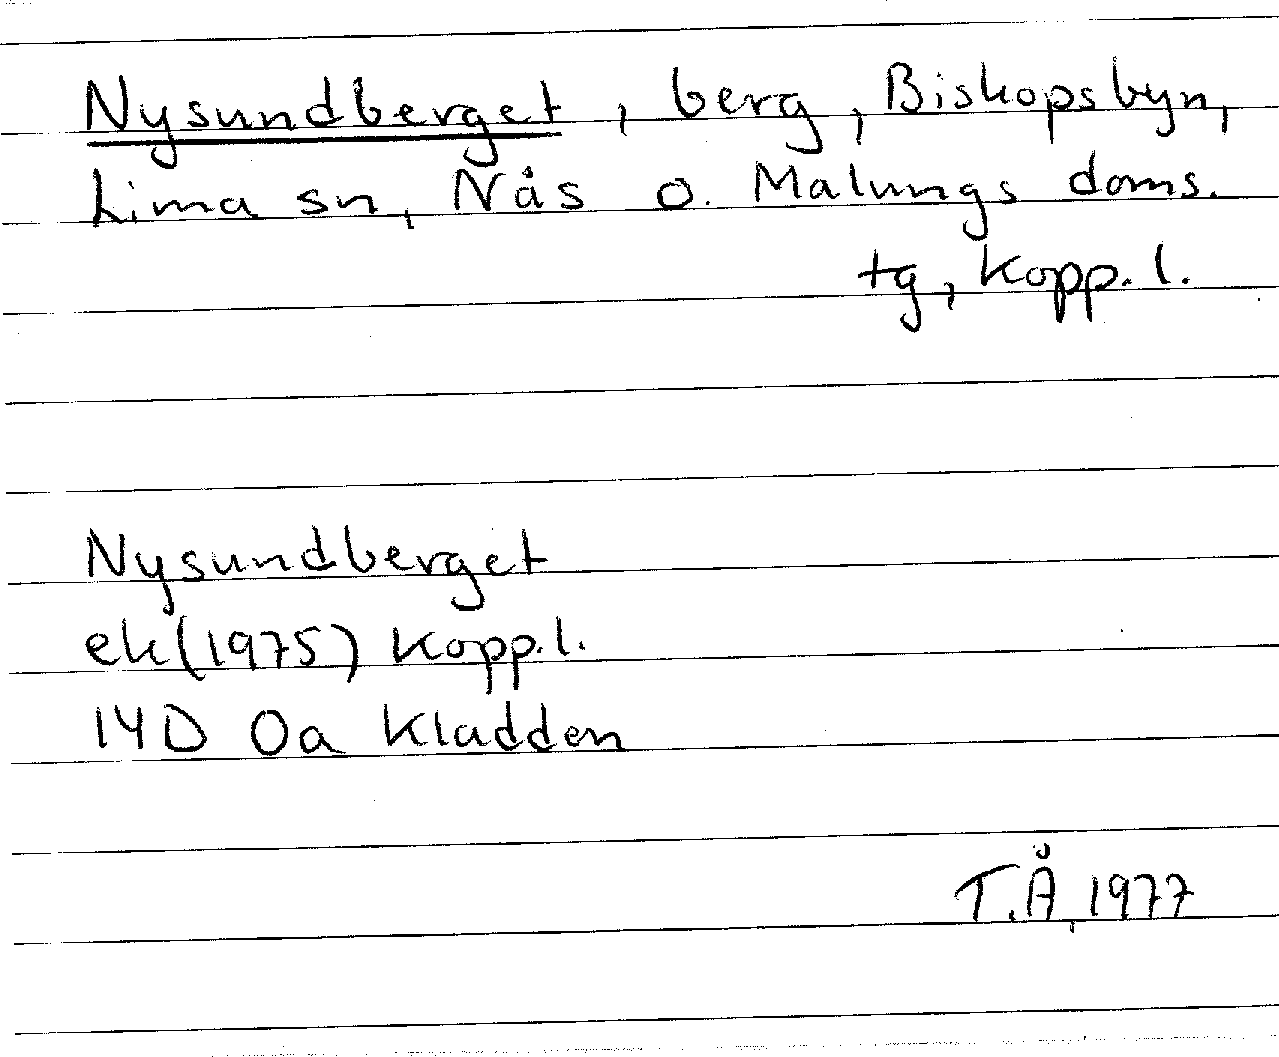 Nysundberget, berg, Biskopsbyn,
Lima sn, Nås o. Malungs doms.
tg, Kopp. l.
Nysundberget
ek(1975) Kopp.l.
14D 0a Kladden
T.Å, 1977